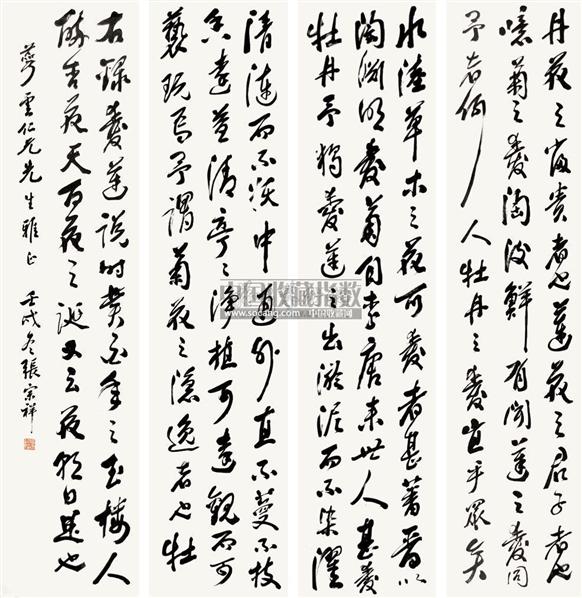 丹花之富貴者也蓮花之君子者也
噫菊之愛陶後鮮有聞蓮之愛同
予者何人牡丹之愛宜乎眾矣
水陸草木之花可愛者甚蕃晉以
陶淵明愛菊自李唐來世人甚愛
牡丹予獨愛蓮之出淤泥而不染濯
清漣而不妖中通外直不蔓不枝
香遠益清亭々淨植可遠觀而不可
褻玩焉予謂菊花之隱逸者也牡
右錄愛蓮說時之玉樓人
醉杏花天百花之誕又云花朝日是也
萼雲仁兄先生雅正 壬戌冬張宗祥
中国收藏指数
www.socang.com·中国收藏网